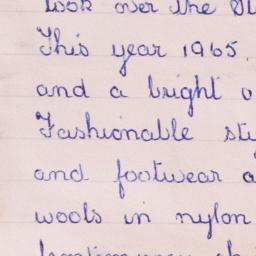 look over the
This year 1965.
and a bright
Fashionable
and footwear
wools in nylon